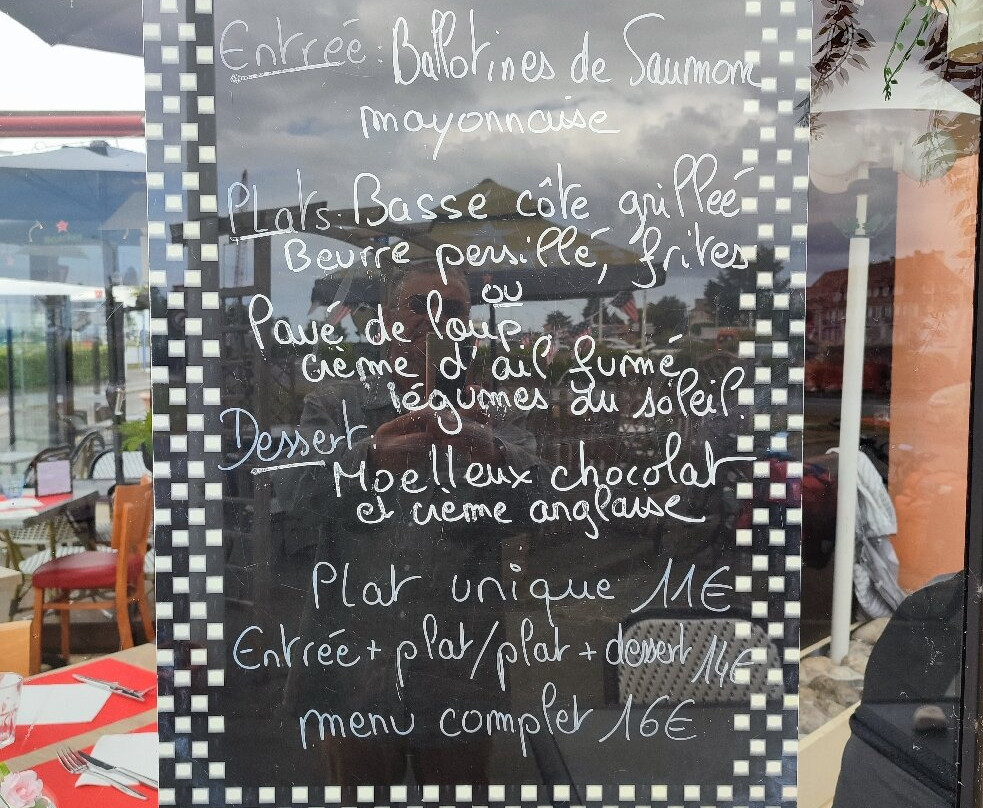 Entrée: Ballotines de Saumon
mayonnaise
Plats: Basse côte grilleé
Beurre persillé, frites
ou
Pavé de loup,
crème d'ail fumé
légumes du soleil.
Dessert:
Moelleux chocolat
et crème anglaise
Plat unique 11€
Entrée + plat/plat + dessert 14€
menu complet 16€